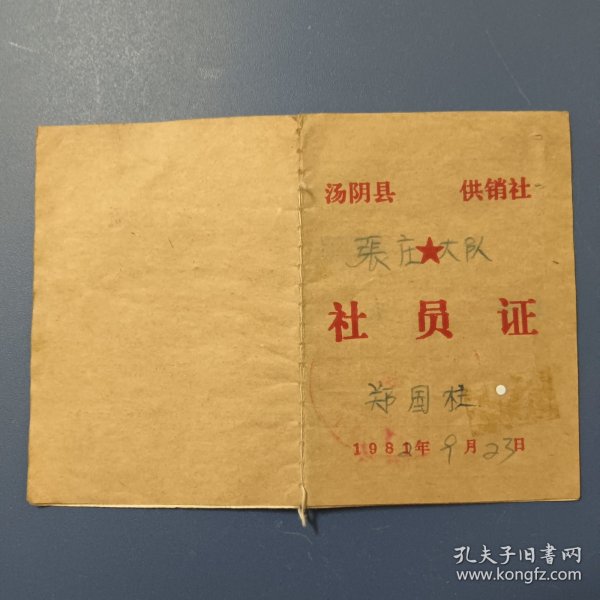 汤阴县 供销社
張庄★大队
社员证
郑国柱
1982年9月23日
孔夫子旧书网
www.kongfz.com